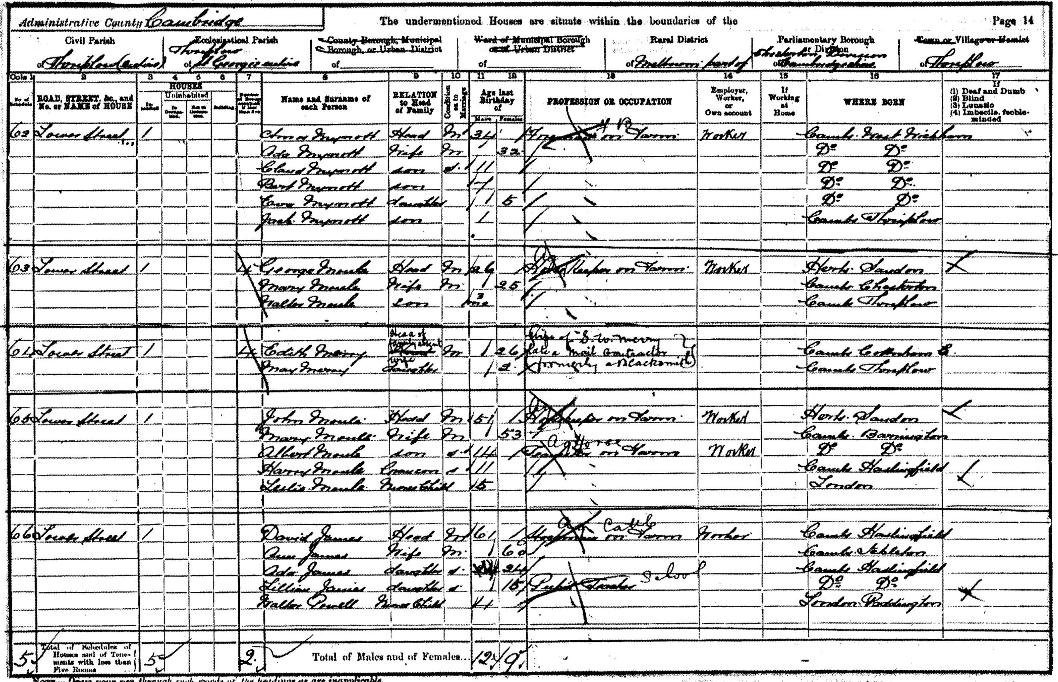 Administrative County Cambridge The undermentioned Houses are situate within the boundaries of the Page 14
Civil Parish Ecclesiastical Parish County Borough, Municipal Borough, or Urban District Ward of Municipal Borough or of Urban District Rural District Parliamentary Borough or Division Town or Village or Hamlet
of Thriplow (entire) of Thriplow St Georges entire of of of Melbourn part of of Chesterton Division Cambridgeshire of Thriplow
Cols 1 2 3 4 5 6 7 8 9 10 11 12 13 14 15 16 17
No. of Schedule ROAD, STREET, &c., and No. or NAME of HOUSE HOUSES Inhabited Uninhabited Building Name and Surname of each Person RELATION to Head of Family Condition as to Marriage Age last Birthday of Males Females PROFESSION OR OCCUPATION Employer, Worker, or Own account If Working at Home WHERE BORN If (1) Deaf and Dumb (2) Blind (3) Lunatic (4) Imbecile, feeble-minded
62 Lower Street 1 Mynott Head M 34 on Farm Worker Cambs West Wickham
Ada Mynott Wife M 32 Do Do
Claud Mynott son s 11 Do Do
Bert Mynott son 7 Do Do
Mynott daughter 5 Do Do
Jack Mynott son 1 Cambs Thriplow
63 Lower Street 1 4 George Moule Head M 26 on Farm Worker Herts Sandon
Mary Moule Wife M 25 Cambs Chesterton
Walter Moule Son 3 mo Cambs Thriplow
64 Lower Street 1 4 Edith Merry wife M 26 Wife of S. W. Merry Mail Contractor (formerly a Blacksmith) Cambs Cottenham
May Merry daughter 2 Cambs Thriplow
65 Lower Street 1 John Moule Head M 51 on Farm Worker Herts Sandon
Mary Moule Wife M 53 Cambs Barrington
Albert Moule son s 14 Ag Horse on Farm Worker Do Do
Harry Moule s 11 Cambs Haslingfield
Leslie Moule Nurse Child 5 London
66 Lower Street 1 David James Head M 61 Cattle on Farm Worker Cambs Haslingfield
Ann James Wife M 60 Cambs
Ada James daughter s 24 Cambs Haslingfield
Lillian James daughter s 15 Pupil Teacher School Do Do
Walter Powell Nurse Child 4 London Paddington
5 Total of Schedules of Houses and of Tenements with less than Five Rooms 5 2 Total of Males and of Females... 12 9